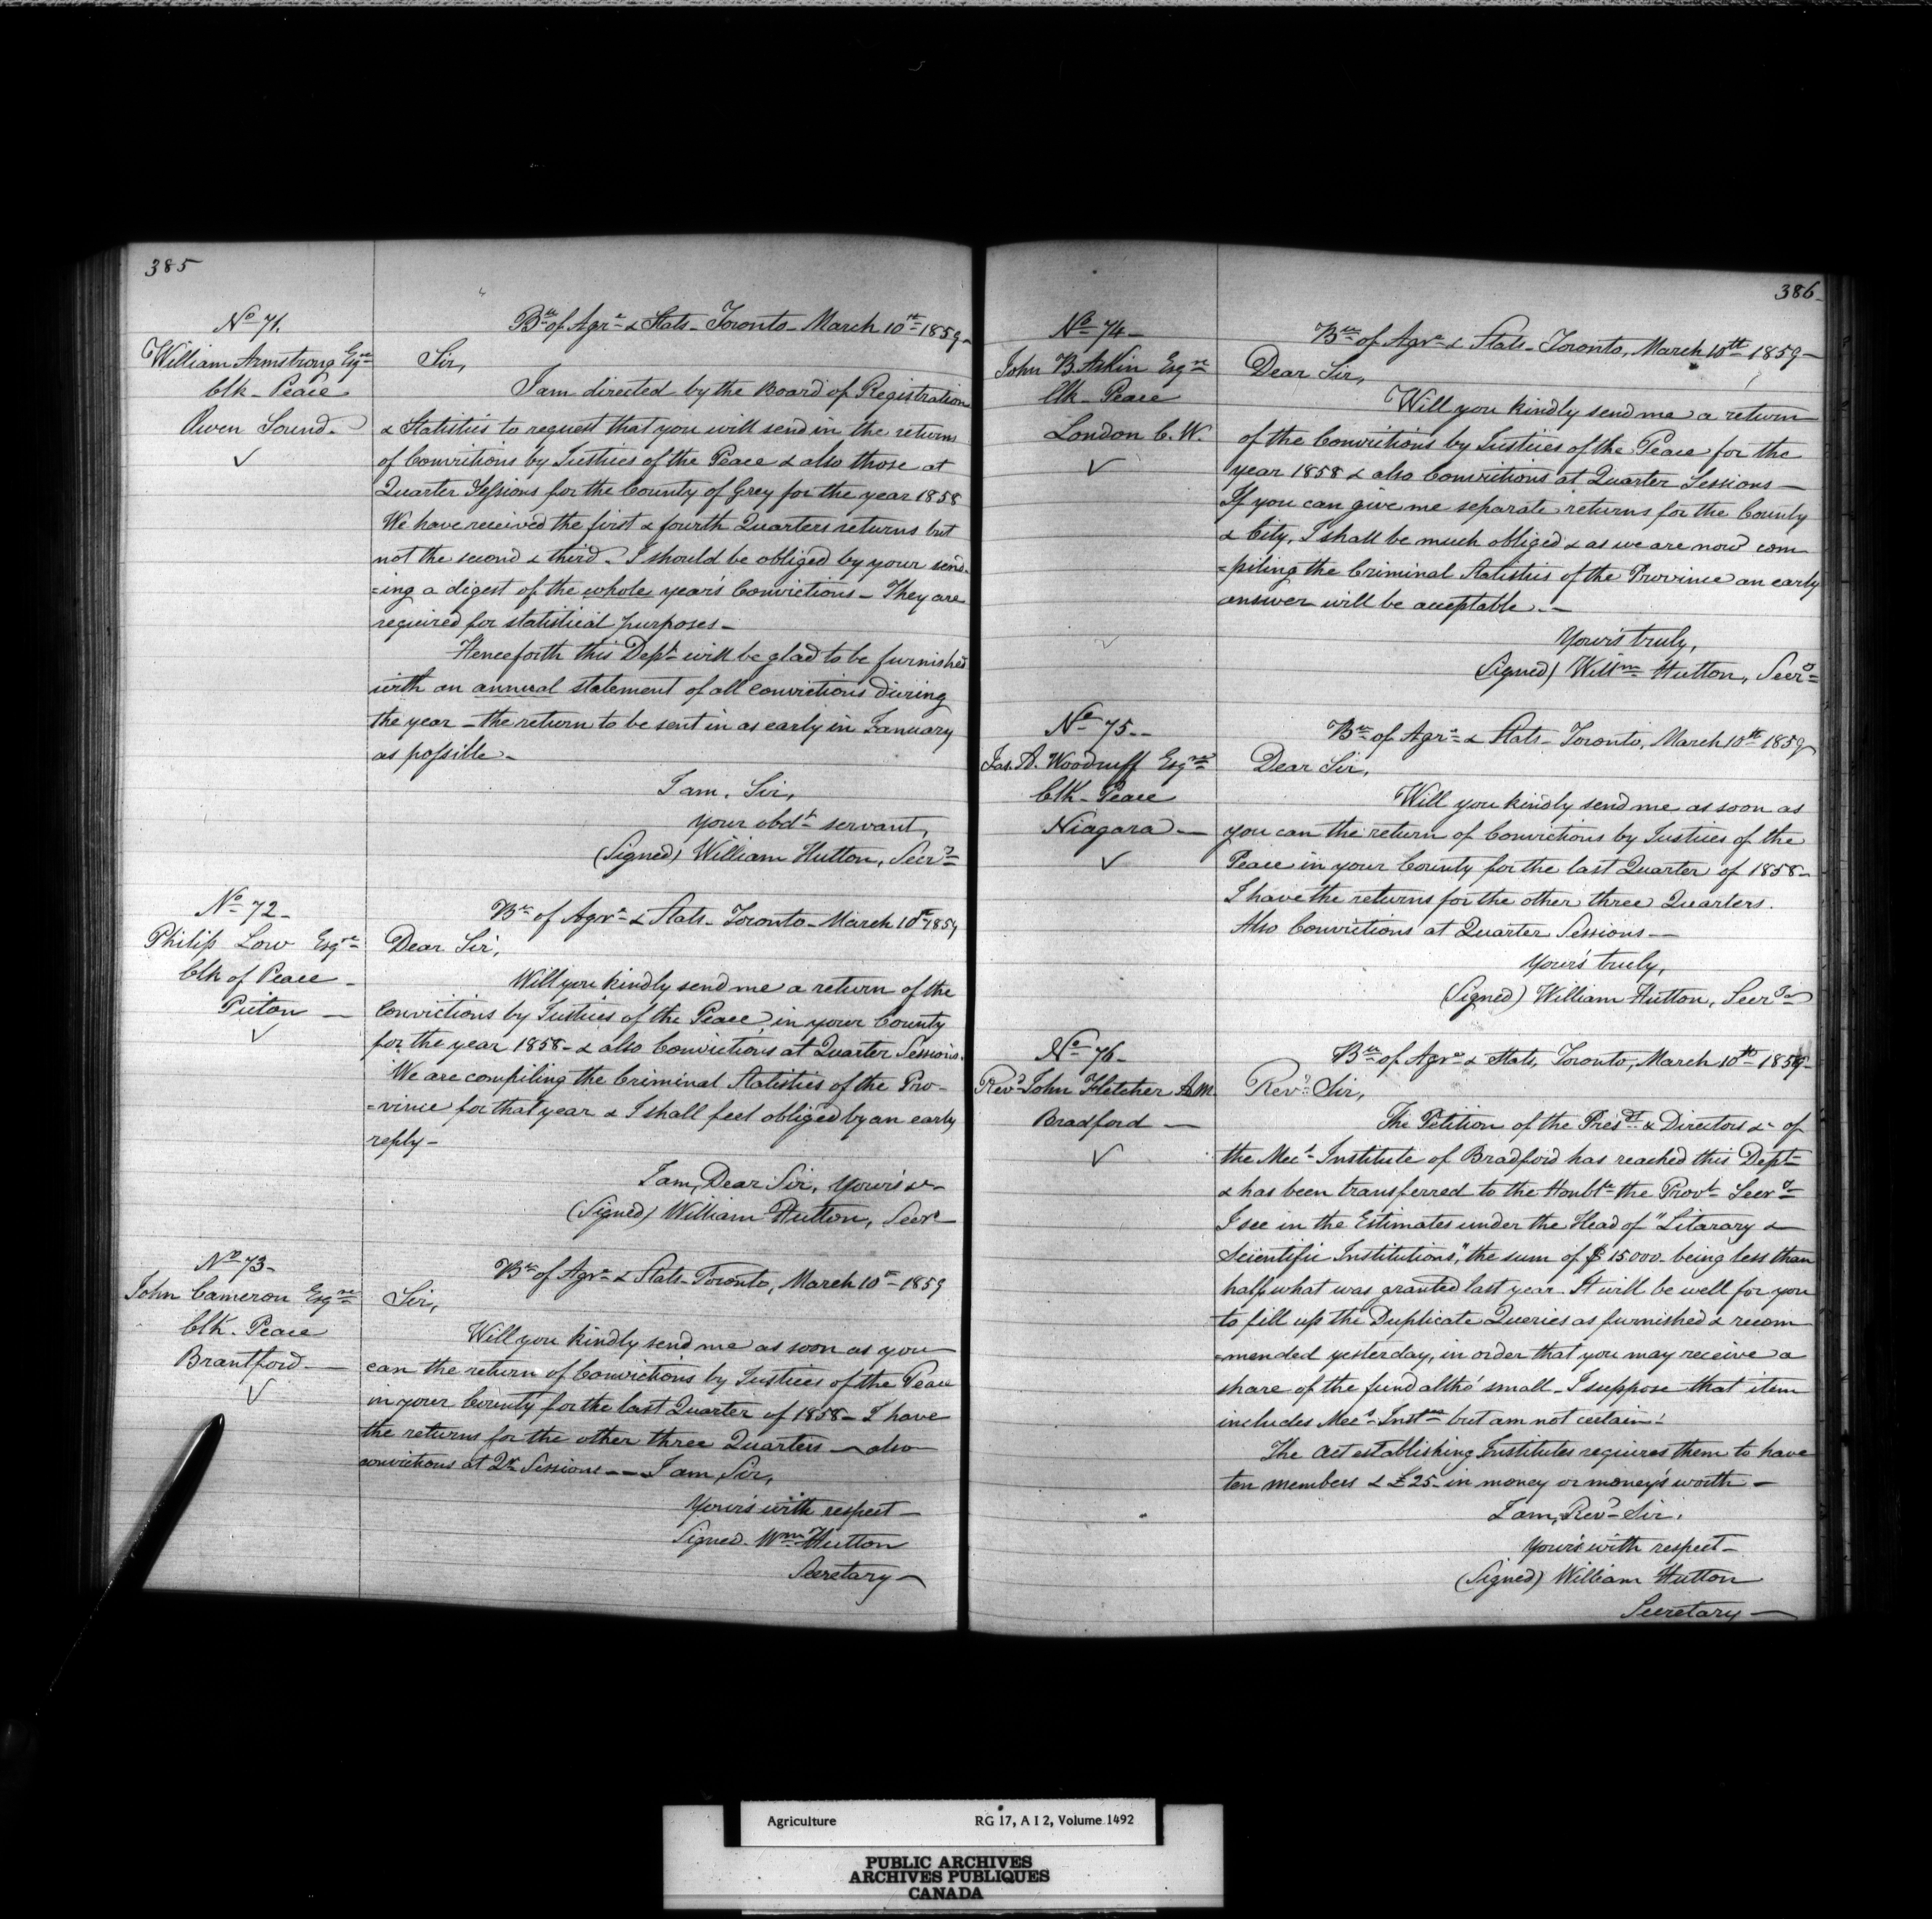 385
No 71.
William Armstrong Esqre
Clk - Peace
Owen Sound -
Bu of Agre & Stats - Toronto - March 10th 1859 -
Sir,
I am directed by the Board of Registration
& Statistics to request that you will send in the returns
of Convictions by Justices of the Peace & also those at
Quarter Sessions for the County of Grey for the year 1858
We have received the first & fourth Quarters returns but
not the second & third. I should be obliged by your send-
=ing a digest of the whole year's Convictions - They are
required for statistical purposes -
Henceforth this Dept will be glad to be furnished
with an annual statement of all convictions during
the year - the return to be sent in as early in January
as possible -
I am, Sir,
your obdt servant,
(Signed) William Hutton, Secry
No 72 -
Philip Low Esqre
Clk of Peace -
Picton -
Bu of Agre & Stats - Toronto - March 10th 1859
Dear Sir,
Will you kindly send me a return of the
convictions by Justices of the Peace in your County
for the year 1858 - & also Convictions at Quarter Sessions.
We are compiling the Criminal Statistics of the Pro-
=vince for that year & I shall feel obliged by an early
reply -
I am, Dear Sir, Your's &c -
(Signed) William Hutton, Secry
No 73 -
John Cameron Esqre
Clk - Peace
Brantford -
Bu of Agre & Stats - Toronto, March 10th 1859
Sir,
Will you kindly send me as soon as you
can the return of Convictions by Justices of the Peace
in your County for the last Quarter of 1858 - I have
the returns for the other three Quarters - also
convictions at Qr Sessions - - I am, Sir,
Your's with respect -
Signed - Wm Hutton
Secretary -
386 -
No 74 -
John B Askin Esqre
Clk - Peace
London C. W.
Bu of Agre & Stats - Toronto, March 10th 1859 -
Dear Sir,
Will you kindly send me a return
of the Convictions by Justices of the Peace for the
year 1858 & also Convictions at Quarter Sessions -
If you can give me separate returns for the County
& City, I shall be much obliged & as we are now com
=piling the Criminal Statistics of the Province an early
answer will be acceptable. -
Your's truly,
(Signed) Willm Hutton, Secry
No 75 - -
Jas. A. Woodruff Esqre
Clk - Peace
Niagara -
Bu of Agre & Stats - Toronto, March 10th 1859
Dear Sir,
Will you kindly send me as soon as
you can the return of Convictions by Justices of the
Peace in your County for the last Quarter of 1858 -
I have the returns for the other three Quarters.
Also Convictions at Quarter Sessions -
Your's truly,
(Signed) William Hutton, Secry
No 76 -
Revd John Fletcher A.M.
Bradford -
Bu of Agre & Stats, Toronto, March 10th 1859 -
Revd Sir,
The Petition of the Presdt & Directors &c of
the Mecs Institute of Bradford has reached this Dept
& has been transferred to the Honble the Provl Secry
I see in the Estimates under the Head of "Litarary &
Scientific Institutions," the sum of $15000 - being less than
half what was granted last year. It will be well for you
to fill up the Duplicate Queries as furnished & recom
=mended yesterday, in order that you may receive a
share of the fund altho' small - I suppose that item
includes Mecs Instes but am not certain.
The Act establishing Institutes requires them to have
ten members & £25 - in money or money's worth -
I am, Revd Sir,
Your's with respect -
(Signed) William Hutton
Secretary -
Agriculture RG 17, A I 2, Volume 1492
PUBLIC ARCHIVES
ARCHIVES PUBLIQUES
CANADA